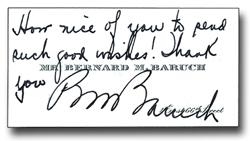 How nice of you to send
such good wishes! Thank
you
MR BERNARD M. BARUCH
BM Baruch